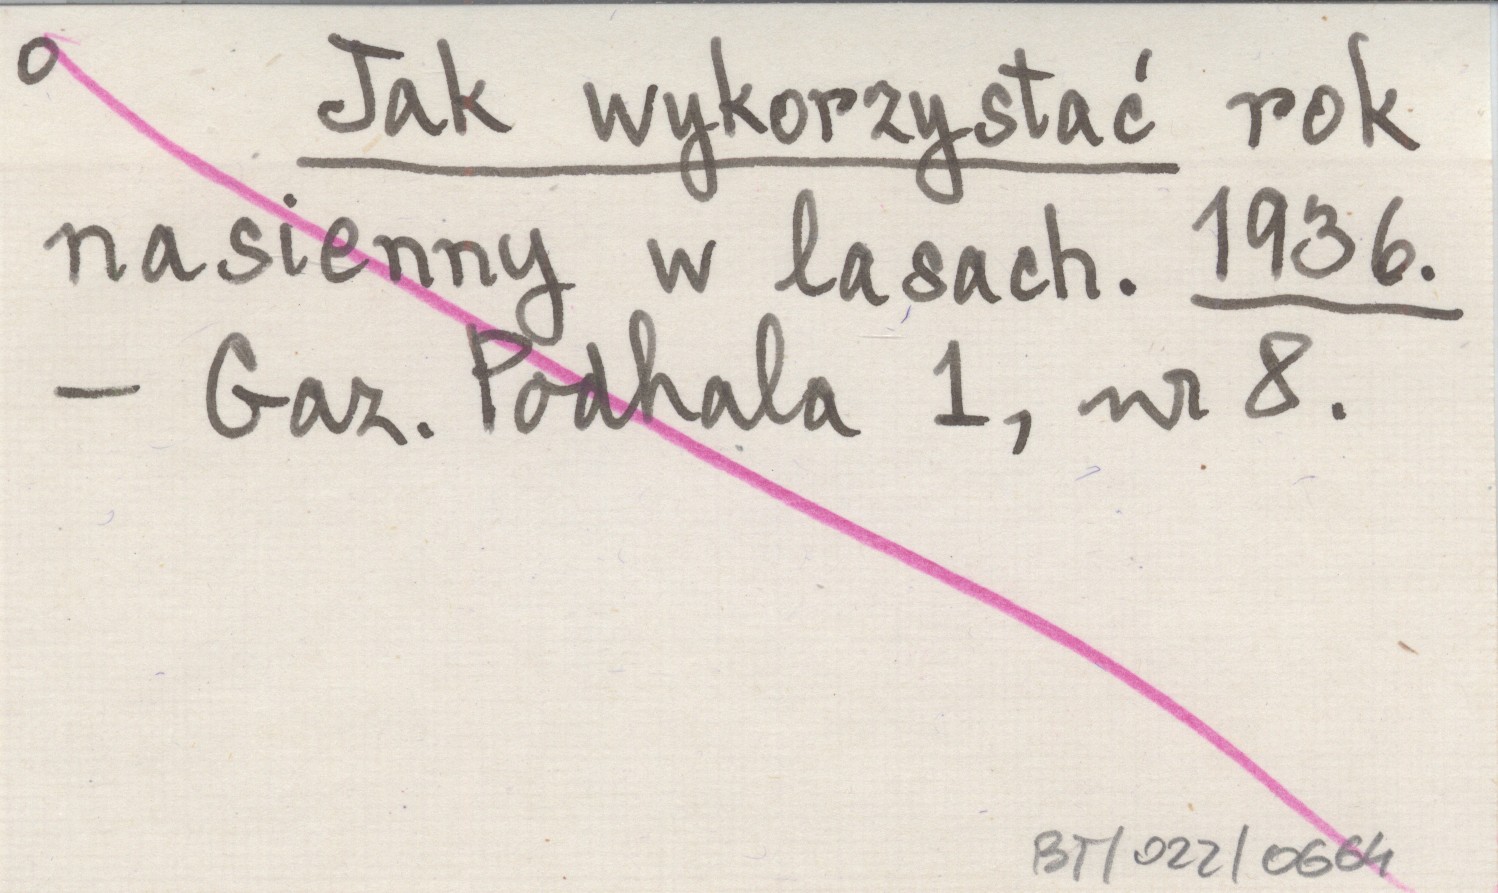 o Jak wykorzystać rok
nasienny w lasach. 1936.
– Gaz. Podhala 1, nr 8.
BT/022/0664